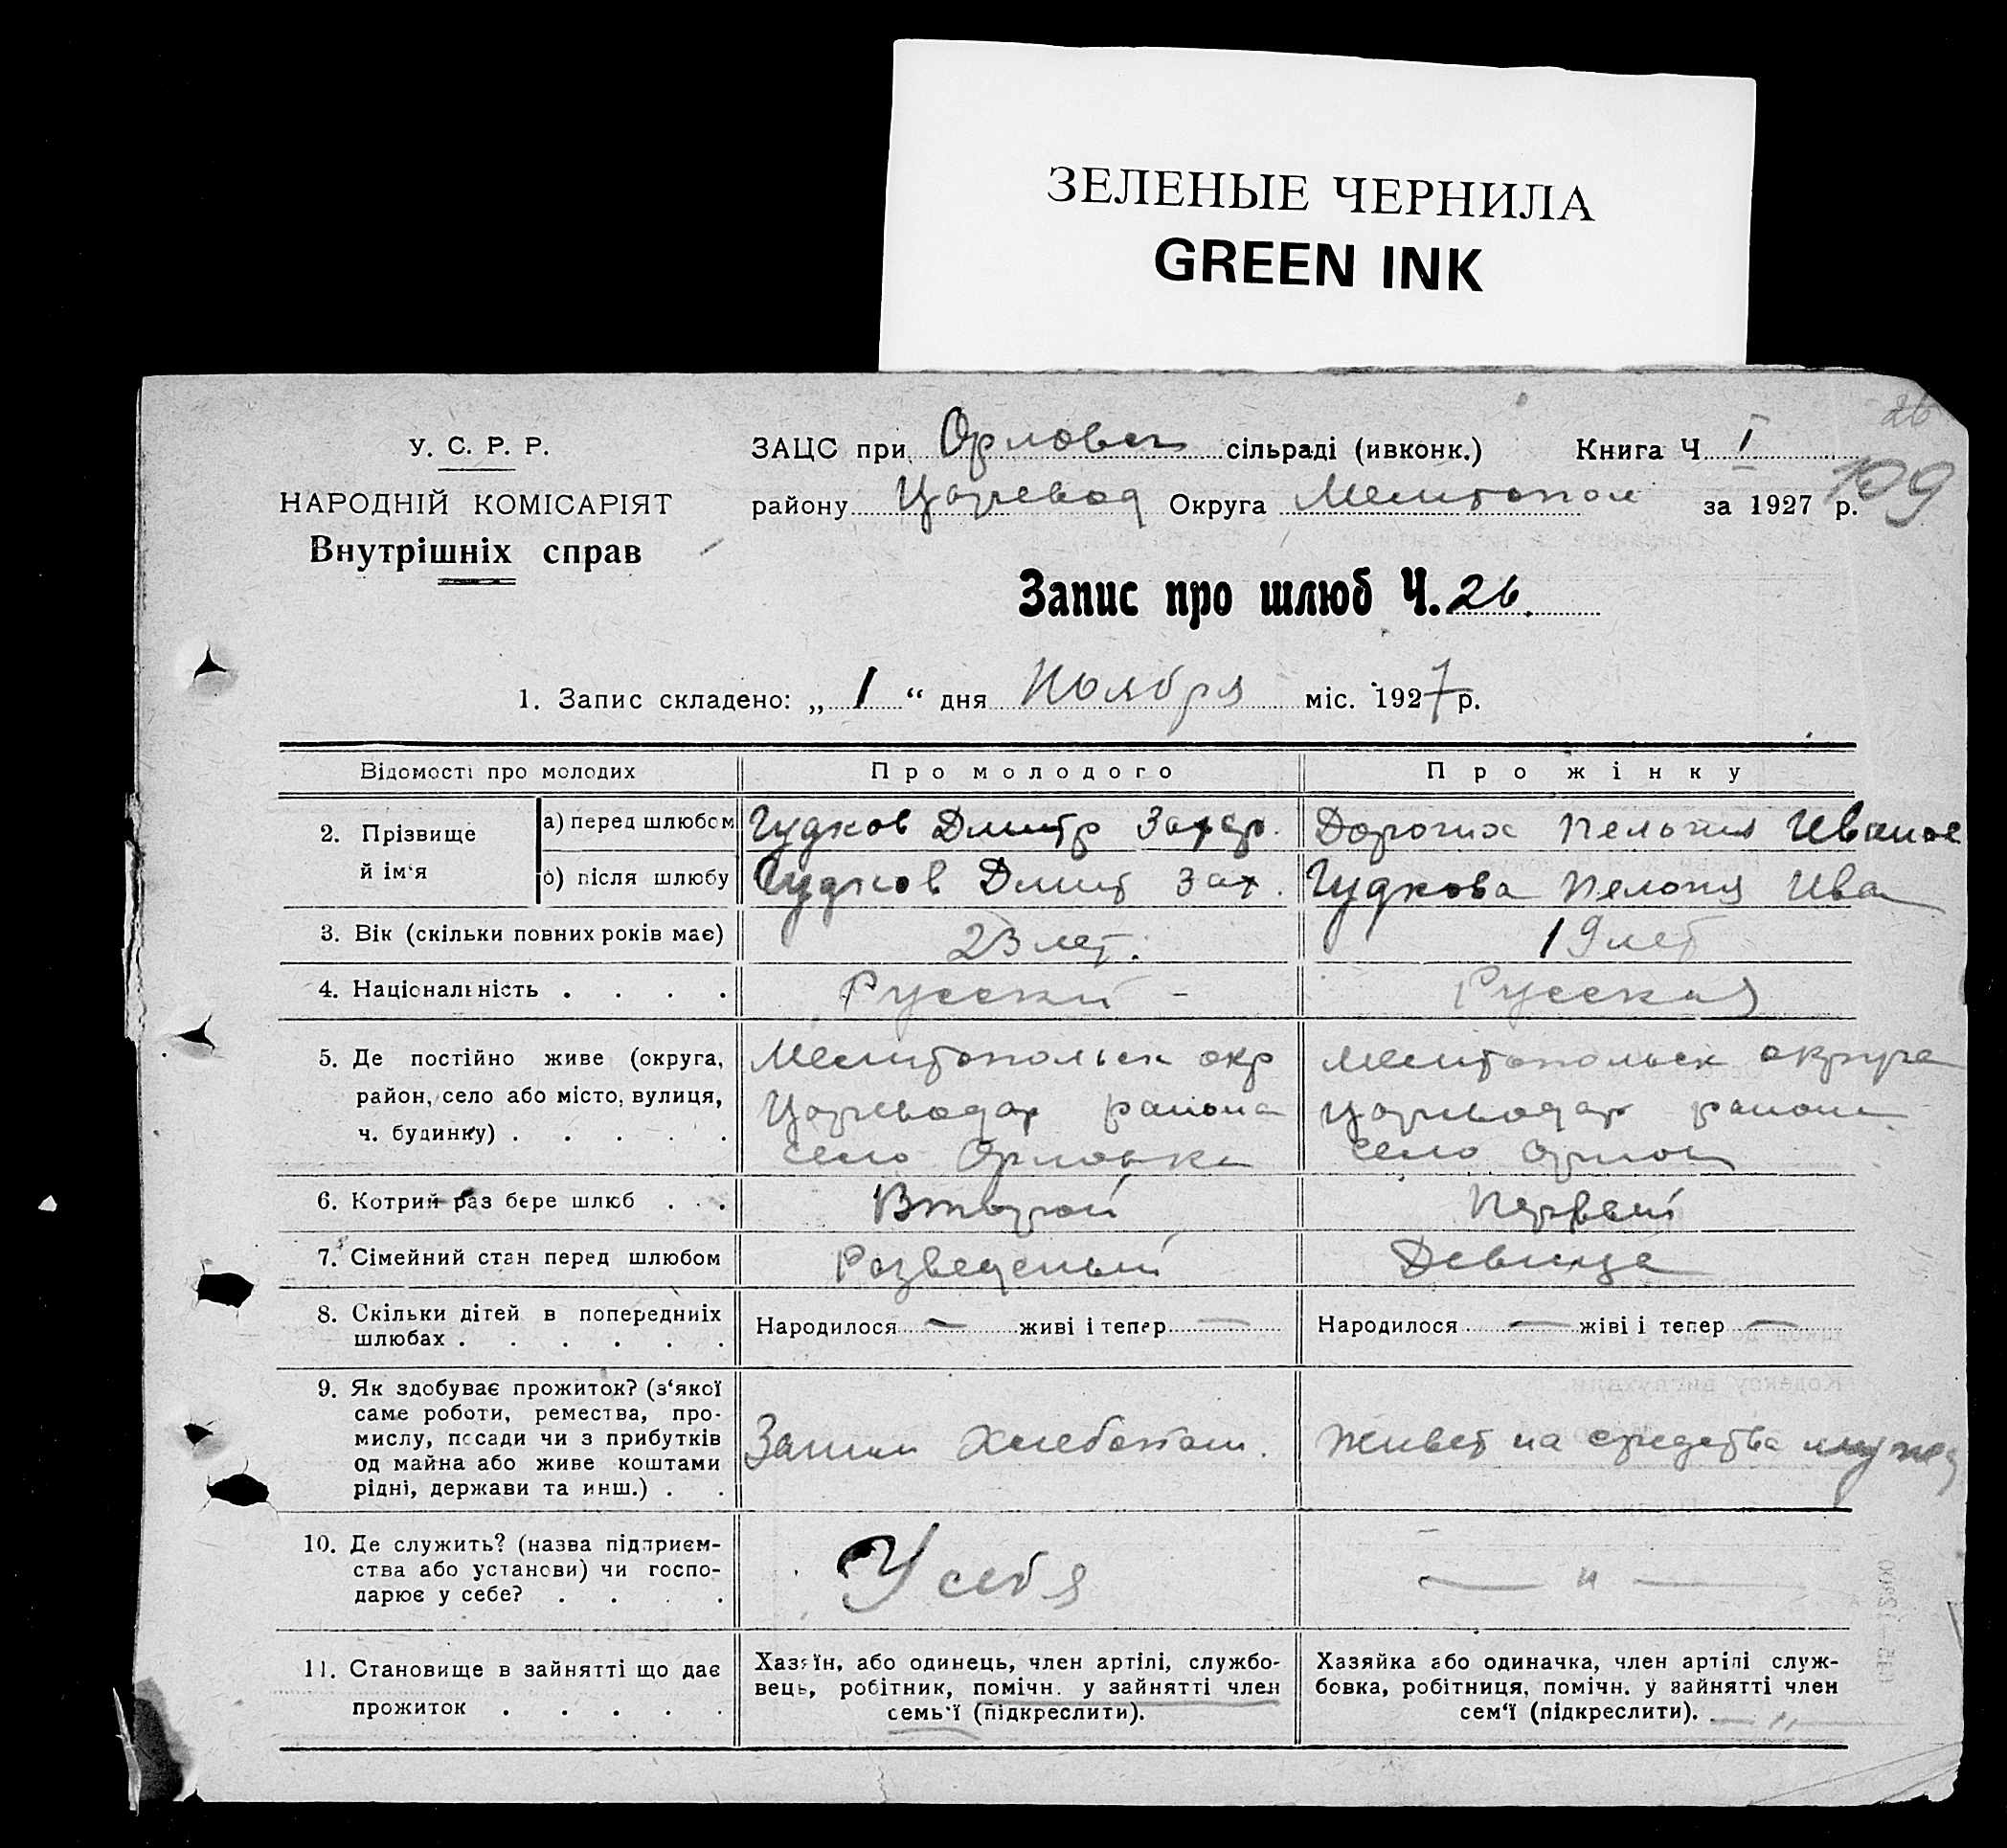 ЗЕЛЕНЫЕ ЧЕРНИЛА
GREEN INK
26
109
У. С. Р. Р.
НАРОДНІЙ КОМІСАРІЯТ
Внутрішніх справ
ЗАЦС при Орловск сільраді (ивконк.) Книга Ч I
району Царевод Округа Мелитопол за 1927 р.
Запис про шлюб Ч. 26.
1. Запис складено: „ 1 “ дня Ноября міс. 1927 р.
Відомості про молодих Про молодого Про жінку
2. Прізвище й ім‘я
а) перед шлюбом Гудков Дмитр Захар. Дорогих
б) після шлюбу Гудков Дмит Зах. Гудкова Пелогия Ива
3. Вік (скільки повних років має) 23 лет. 19 лет
4. Національність . . . . Русский - Русская
5. Де постійно живе (округа, район, село або місто, вулиця, ч. будинку) . . . . .
Мелитопольск окр
Цареводар района
село Орловка
Мелитопольск округа
Цареводар района
село Орлов
6. Котрий раз бере шлюб . . . Второй Первый
7. Сімейний стан перед шлюбом Разведеный Девица
8. Скільки дітей в попередниіх шлюбах . . . . . . Народилося — живі і тепер — Народилося — жіві і тепер —
9. Як здобуває прожиток? (з‘якої
саме роботи, ремества, про-
мислу, посади чи з прибутків
од майна або живе коштами
рідні, держави та инш.) . .
Заним Хлебопаш.
Живет на средства мужа
10. Де служить? (назва підприєм-
ства або установи) чи госпо-
дарює у себе? . . . .
У себя
— „ —
11. Становище в зайнятті що дає
прожиток . . . . .
Хазяїн, або одинець, член артілі, службо-
вець, робітник, помічн. у зайнятті член
семь‘ї (підкреслити).
Хазяйка або одиначка, член артілі служ-
бовка, робітниця, помічн. у зайнятті член
сем‘ї (підкреслити). — „ —